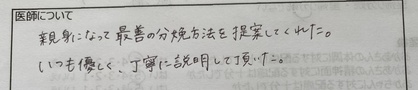 医師について
親身になって最善の分娩方法を提案してくれた。
いつも優しく、丁寧に説明して頂いた。